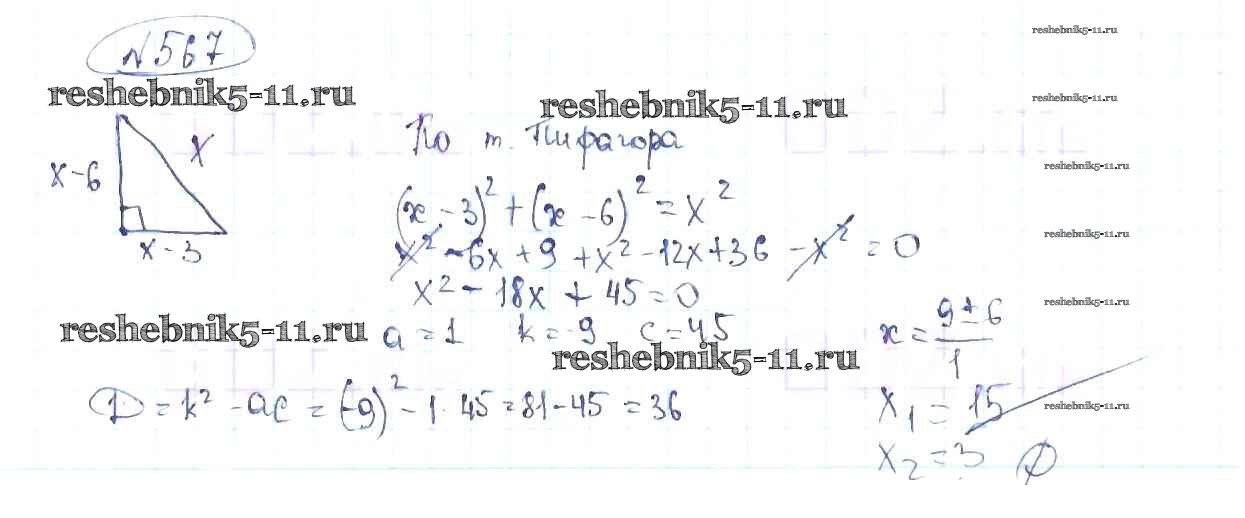 №567
reshebnik5-11.ru
reshebnik5-11.ru
reshebnik5-11.ru
reshebnik5-11.ru
reshebnik5-11.ru
reshebnik5-11.ru
x-6
x
x-3
По т. Пифагора
(x-3)² + (x-6)² = x²
x² - 6x + 9 + x² - 12x + 36 - x² = 0
x² - 18x + 45 = 0
reshebnik5-11.ru
a = 1 k = -9 c = 45
reshebnik5-11.ru
reshebnik5-11.ru
D = k² - ac = (-9)² - 1·45 = 81 - 45 = 36
x = 9±6/1
x₁ = 15
reshebnik5-11.ru
x₂ = 3 ∅